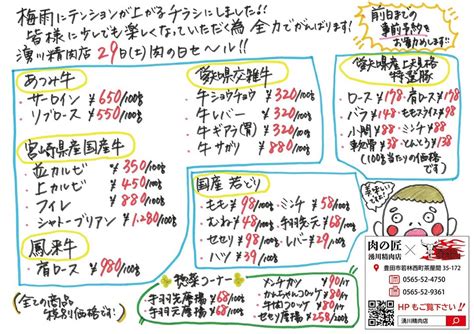 梅雨にテンションが上がるチラシにしました!!
皆様に少しでも楽しくなっていただく為 全力でがんばります!
湊川精肉店 29日(土)肉の日セール!!
前日までの
事前予約を
お薦めします!!
あつみ牛
・サーロイン ¥650/100g
・リブロース ¥550/100g
宮崎県産国産牛
・並カルビ ¥350/100g
・上カルビ ¥450/100g
・フィレ ¥880/100g
・シャトーブリアン ¥1.280/100g
鳳来牛
・肩ロース ¥980/100g
(全ての商品
特別価格です)
愛知県交雑牛
・牛ショウチョウ ¥320/100g
・牛レバー ¥320/100g
・牛ギアラ(胃) ¥320/100g
・牛サガリ ¥880/100g
国産 若どり
・もも ¥98/100g
・ミンチ ¥58/100g
・むね ¥48/100g
・手羽元 ¥68/100g
・セセリ ¥98/100g
・レバー ¥29/100g
・ハツ ¥39/100g
愛知県産上天規格
特選豚
・ロース ¥178
・肩ロース ¥178
・バラ ¥148
・ミンチ ¥88
(100g当たりの価格
です)
惣菜コーナー
・手羽先唐揚 ¥68/100g
・手羽元唐揚 ¥58/100g
・メンチカツ ¥90/1ヶ
・牛すじコロッケ ¥80/1ヶ
・セセリ唐揚 ¥258/100g
美味しい
ですよ!
肉の匠
湊川精肉店
豊田市若林西町茶屋間 35-172
0565-52-4750
0565-52-9361
HP もご覧下さい!!
湊川精肉店